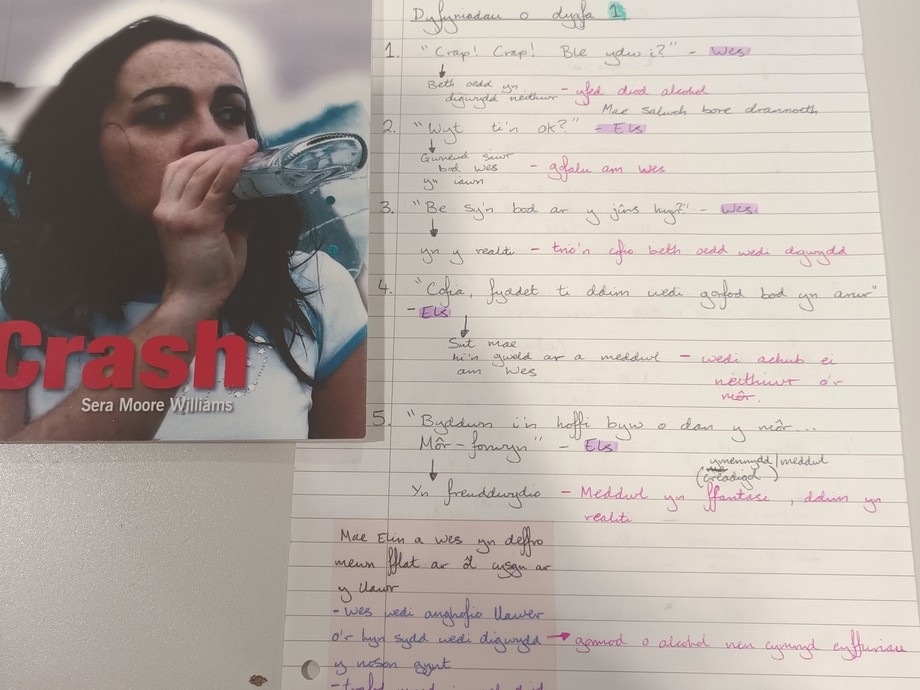 Crash
Sera Moore Williams
Dyfyniadau o dygfa 1
1. "Crap! Crap! Ble ydw i?" - Wes
Beth oedd yn
digwydd neithiwr - yfed diod alcohol
Mae salwch bore drannoeth
2. "Wyt ti'n ok?" - Els
Gwneud siwr
bod Wes - gofalu am Wes
yn iawn
3. "Be sy'n bod ar y jîns hyg?" - Wes
yn y realiti - trio'n cofio beth oedd wedi digwydd
4. "Cofia, fyddet ti ddim wedi gorfod bod yn arwr"
- Els
Sut mae
hi'n gweld ar a meddwl - wedi achub ei
am Wes neithiwr o'r
môr.
5. "Byddwn i'n hoffi byw o dan y môr...
Môr-forwyn" - Els
ymennydd/meddwl
(creadigol)
Yn freuddwydio - Meddwl yn ffantasi, ddim yn
realiti
Mae Elin a Wes yn deffro
mewn fflat ar ôl cysgu ar
y llawr
- Wes wedi anghofio llawer
o'r hyn sydd wedi digwydd → gormod o alcohol neu cymryd cyffuriau
y noson gynt